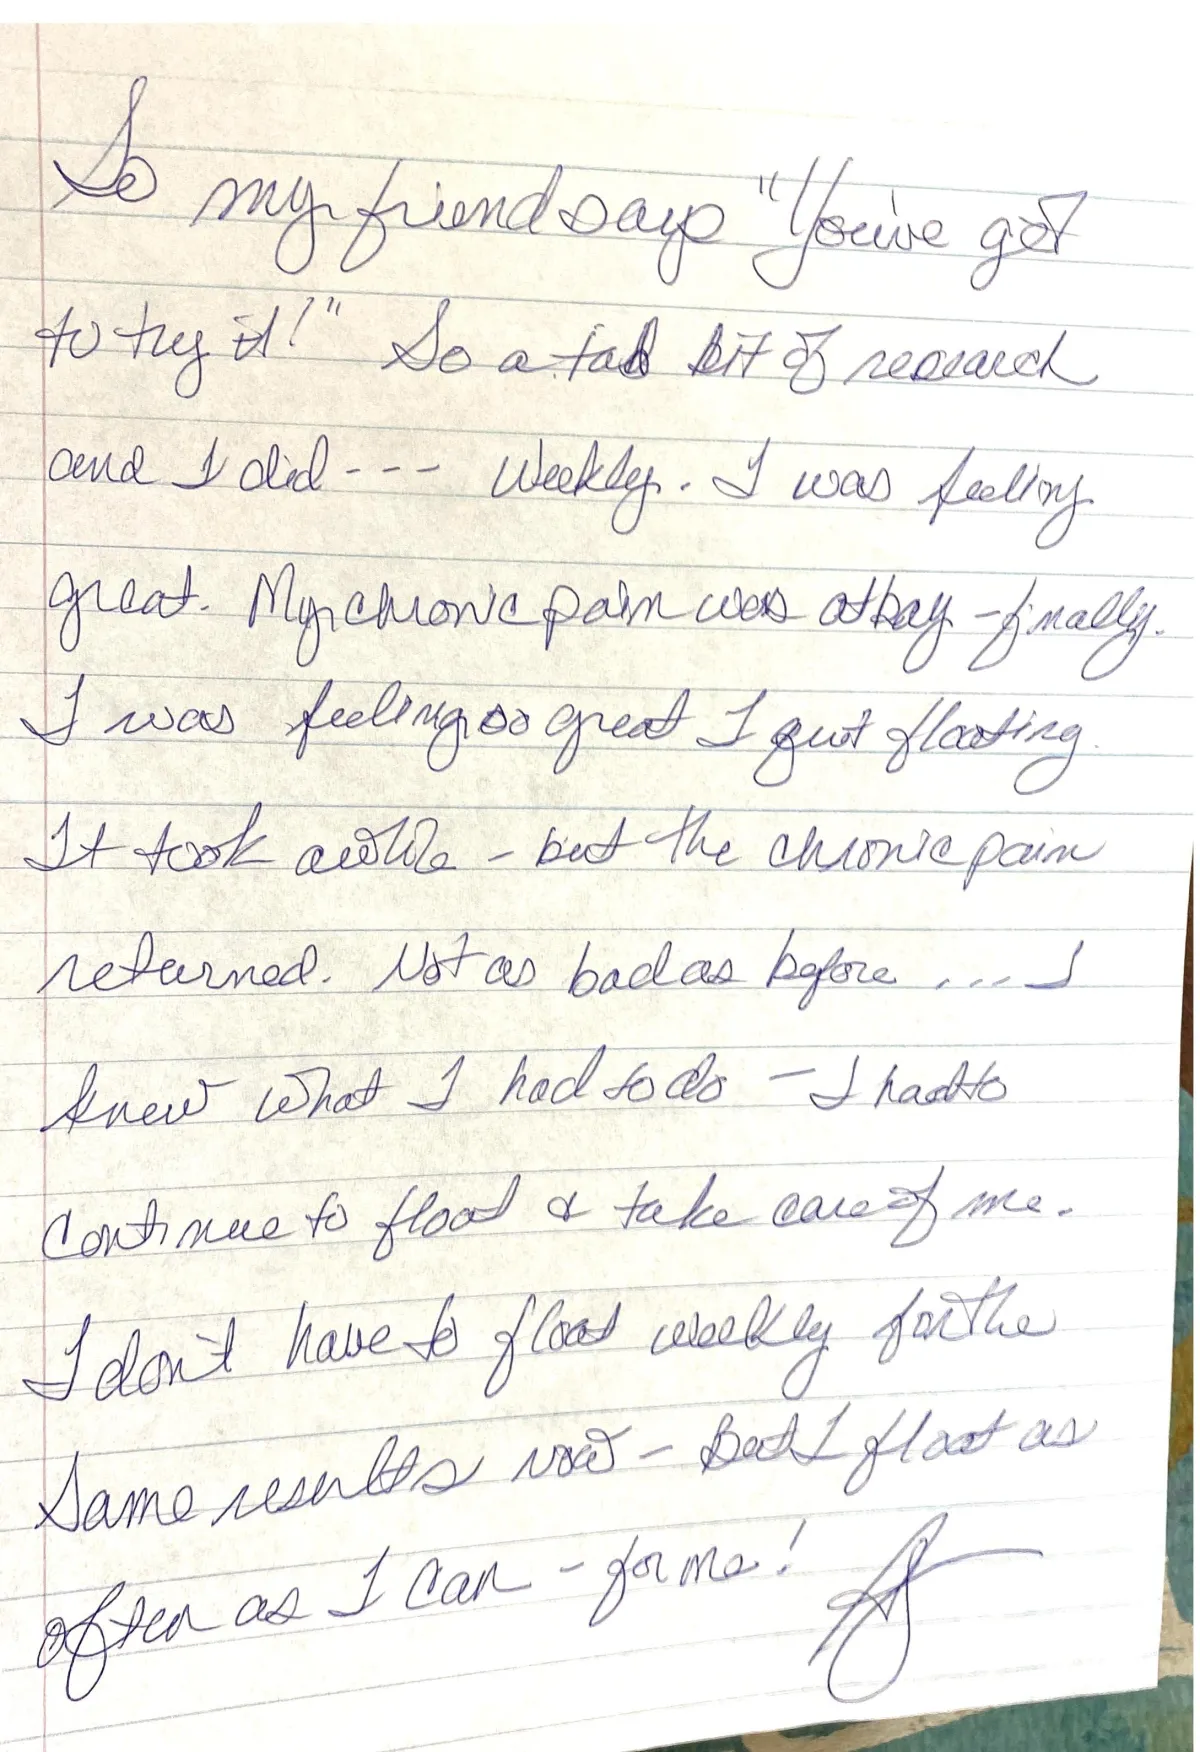 So my friend says "You've got
to try it!" So a tad bit of research
and I did --- Weekly. I was feeling
great. My chronic pain was at bay - finally.
I was feeling so great I quit floating.
It took awhile - but the chronic pain
returned. Not as bad as before .... I
knew what I had to do - I had to
Continue to float & take care of me.
I don't have to float weekly for the
Same results now - But I float as
often as I can - for me!